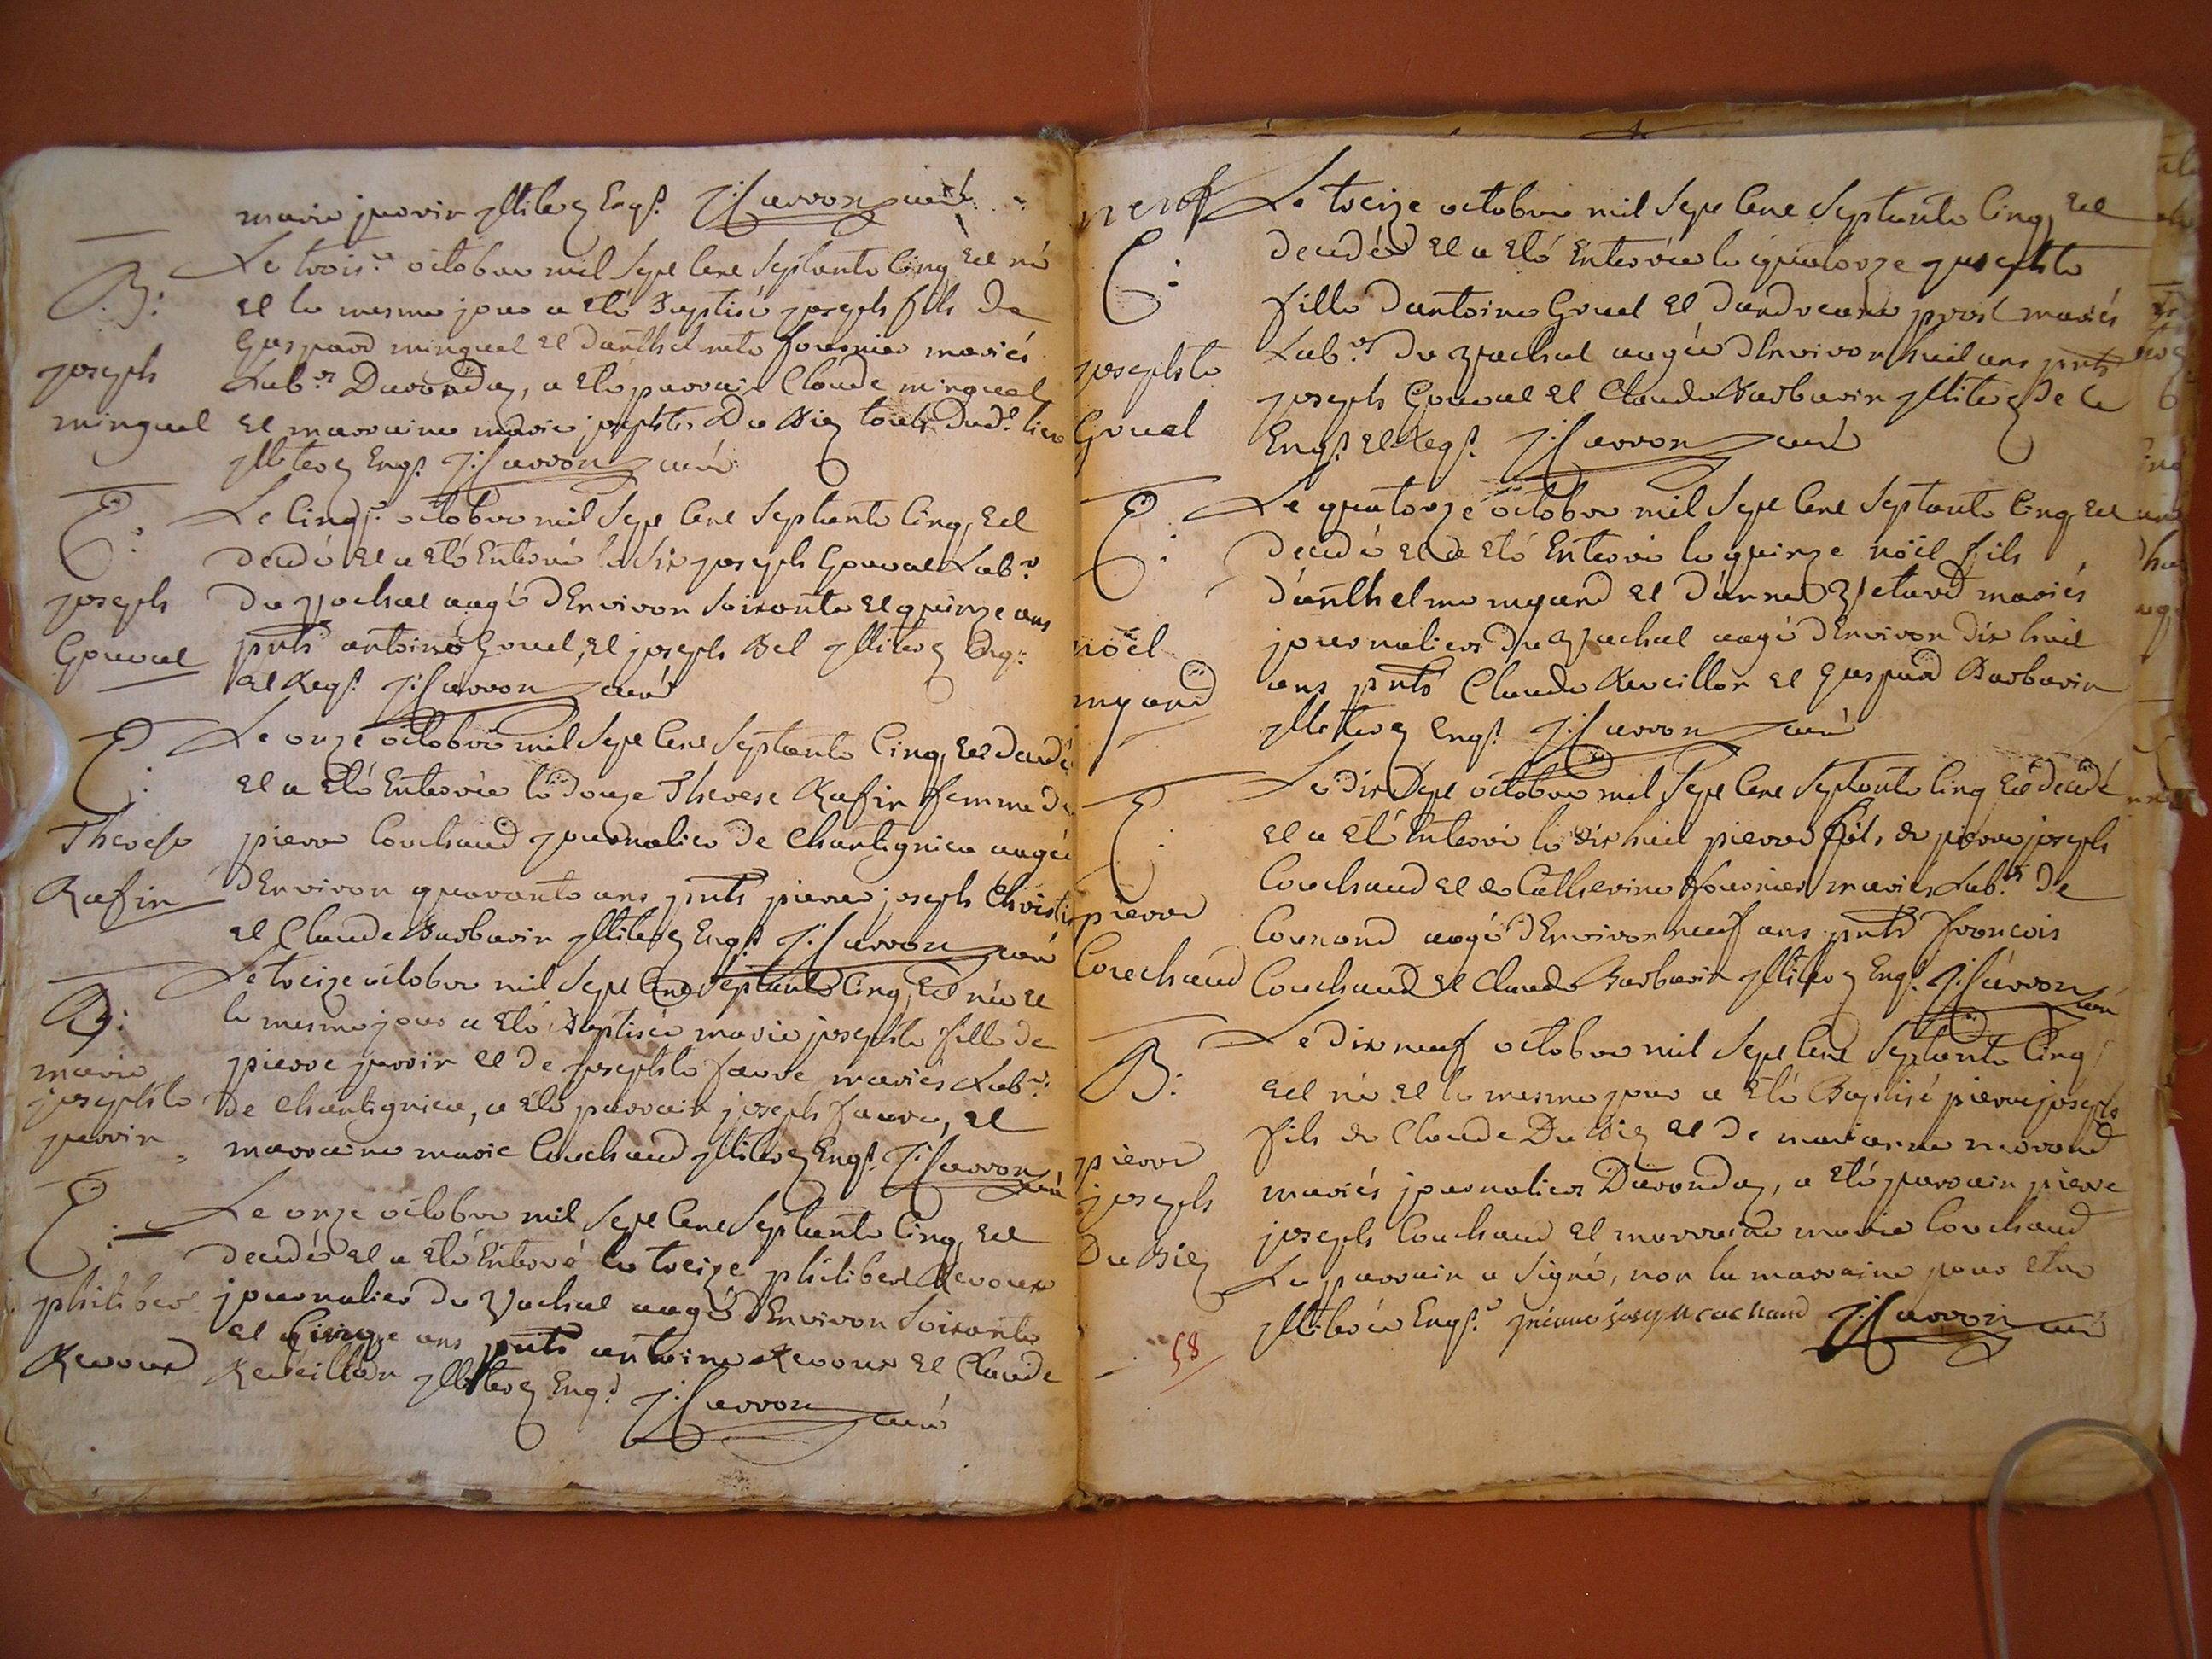 marie juvin illiterez Engs. J: Carron curé
B:
joseph
minguel
Le trois.e octobre mil Sept Cent Septante Cinq Est né
et le mesme jour a Eté Baptisé joseph fils de
Gaspard minguet et danthelmete fournier mariés
Lab.rs Davonday, a Eté parrain Claude minguet
et marraine marie josephte Du Biez touts Dud. lieu
illiterez Engs. J: Carron curé
E:
joseph
Gouval
Le Cinqs. octobre mil Sept Cent Septante Cinq, Est
decedé et a Eté Enterré le six joseph Gouval Lab.r
du
aagé dEnviron soixante et quinze ans
pnts antoine Gouel, et joseph Bel illiterez Engs.
et Regs. J: Carron curé
E:
Therese
Rafin
Le onze octobre mil Sept Cent Septante Cinq, Est decedé
et a Eté Enterrée le douze Therese Rafin femme de
pierre Couchaud journalier de Chantignieu aagée
dEnviron quarante ans pnts pierre joseph Christin
et Claude Barbarin illiterez Engs. J: Carron curé
B:
marie
josephte
juvin
Le treize octobre mil Sept Cent Septante Cinq, Est née et
le mesme jour a Eté Baptisée marie josephte fille de
pierre juvin et de josephte favre mariés Lab.rs
de Chantignieu, a Eté parrain joseph favre, et
marraine marie Couchaud illiterez Engs. J: Carron curé
E:
philibert
Revoux
Le onze octobre mil Sept Cent Septante Cinq, Est
decedé et a Eté Enterré le treize philibert Revoux
journalier du
aagé dEnviron soixante
et
ans pnts antoine Revoux et Claude
Reveillon illiterez Engs. J: Carron curé
neuf
E:
josephte
Gouel
Le treize octobre mil Sept Cent Septante Cinq, Est
decedée et a Eté Enterrée le quatorze josephte
fille dantoine Gouel et dandreane
mariés
Lab.rs du
aagée dEnviron huit ans pnts
joseph Gouval et Claude Barbarin illiterez de ce
Engs. et Regs. J: Carron curé
E:
noël
myand
Le quatorze octobre mil Sept Cent Septante Cinq, Est
decedé et a Eté Enterré le quinze noël fils
danthelme myand et danne
mariés
journaliers du
aagé dEnviron dix huit
ans pnts Claude Reveillon et gaspard Barbarin
illiterez Engs. J: Carron curé
E:
pierre
Couchaud
Le dix Sept octobre mil Sept Cent Septante Cinq Est decedé
et a Eté Enterré le dix huit pierre fils de pierre joseph
Couchaud et de Catherine fournier mariés Lab.rs de
aagé dEnviron neuf ans pnts francois
Couchaud et Claude Barbarin illiterez Engs. J: Carron curé
B:
pierre
joseph
Du Biez
Le dix neuf octobre mil Sept Cent Septante Cinq
Est né et le mesme jour a Eté Baptisé pierre joseph
fils de Claude Du Biez et de marianne morand
mariés journaliers Davonday, a Eté parrain pierre
joseph Couchaud et marraine marie Couchaud
Le parrain a signé, non la marraine pour etre
illiterée Engs. pierre joseph cochaud J: Carron curé
58